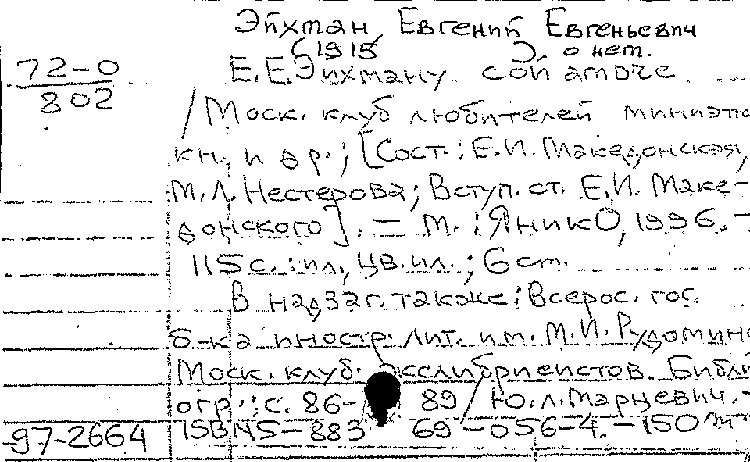 Эйхман, Евгений Евгеньевич
(1915     ) о нем.
72-0
802
Е.Е.Эйхману
/Моск. клуб любителей миниатю
кн. и др.; [Сост.: Е.И. Македонская,
М.Л. Нестерова; Вступ. ст. Е.И. Маке-
донского]. = М.: ЯникО, 1996. -
115 с.: ил., цв. ил.; 6 cm.
В надзаг. также: Всерос. гос.
б-ка иностр. лит. им. М.И. Рудомино
Моск. клуб. экслибрисистов. Библи
огр.: с. 86-89 / Ю.Л. Марцевич. -
97-2664
ISBN 5-883 69-056-4. - 150